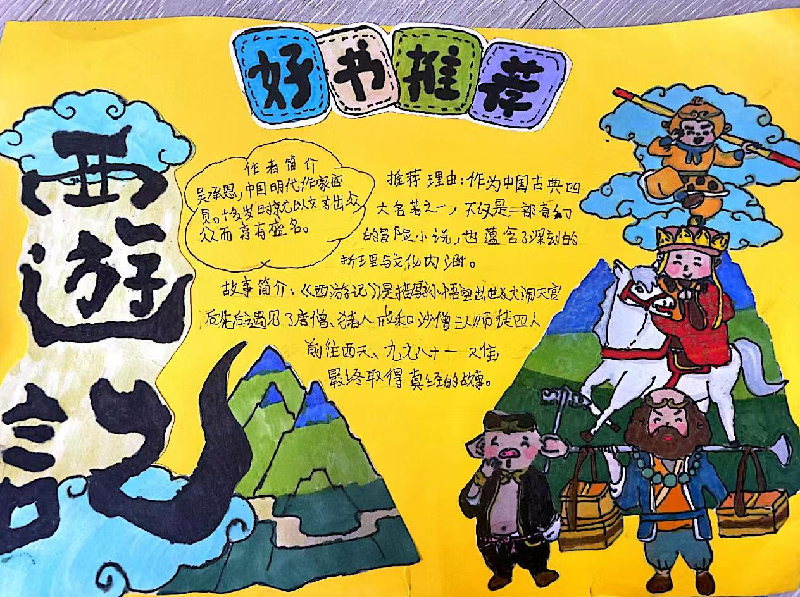 好书推荐
西游记
作者简介
吴承恩,中国明代作家
众而享有盛名。
推荐理由:作为中国古典四
大名著之一,不仅是一部奇幻
的冒险小说,也蕴含了深刻的
哲理与文化内涵。
故事简介:《西游记》是
出世&大闹天宫
后遇见了唐僧、猪八戒和沙僧三人师徒四人
前往西天、九九八十一
最终取得真经的故事。